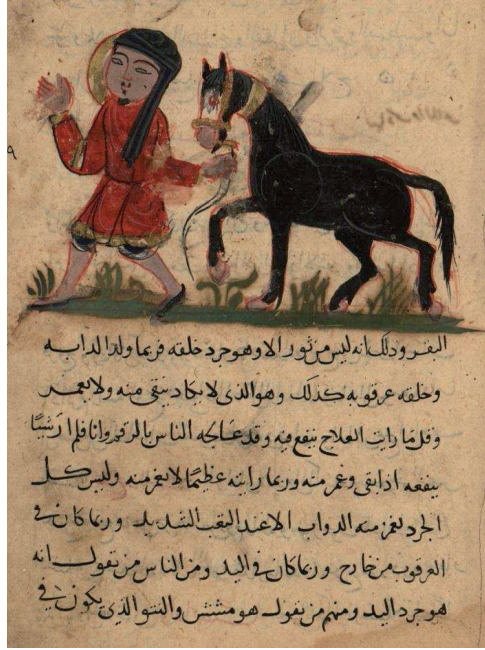 البقر وذلك انه ليس من ثور الا وهو جرد خلقه فربما ولد الدابه
وخلقه عرقوبه كذلك وهو الذى لا يكاد ينقى منه ولا يغمز
وقل ما رايت العلاج ينفع فيه وقد عالجه الناس بالرفد وانا فلم ار شيئا
ينفعه اذا بقى وغمز منه وربما رايته عظيما لا يغمز منه وليس كل
الجرد يغمز منه الدواب الا عند التعب الشديد وربما كان فى
العرقوب من خارج وربما كان فى اليد ومن الناس من يقول انه
هو جرد اليد ومنهم من يقول هو مشش والنتو الذى يكون فى